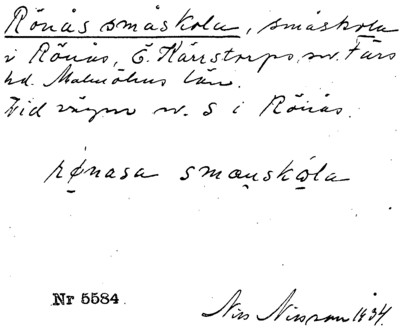 Rönås småskola, småskola
i Rönås, Ö. Kärrstorps sn. Färs
hd. Malmöhus län.
Vid vägen nv. S i Rönås.
rønasa smauskola
Nr 5584
Nils Nilsson 1934.